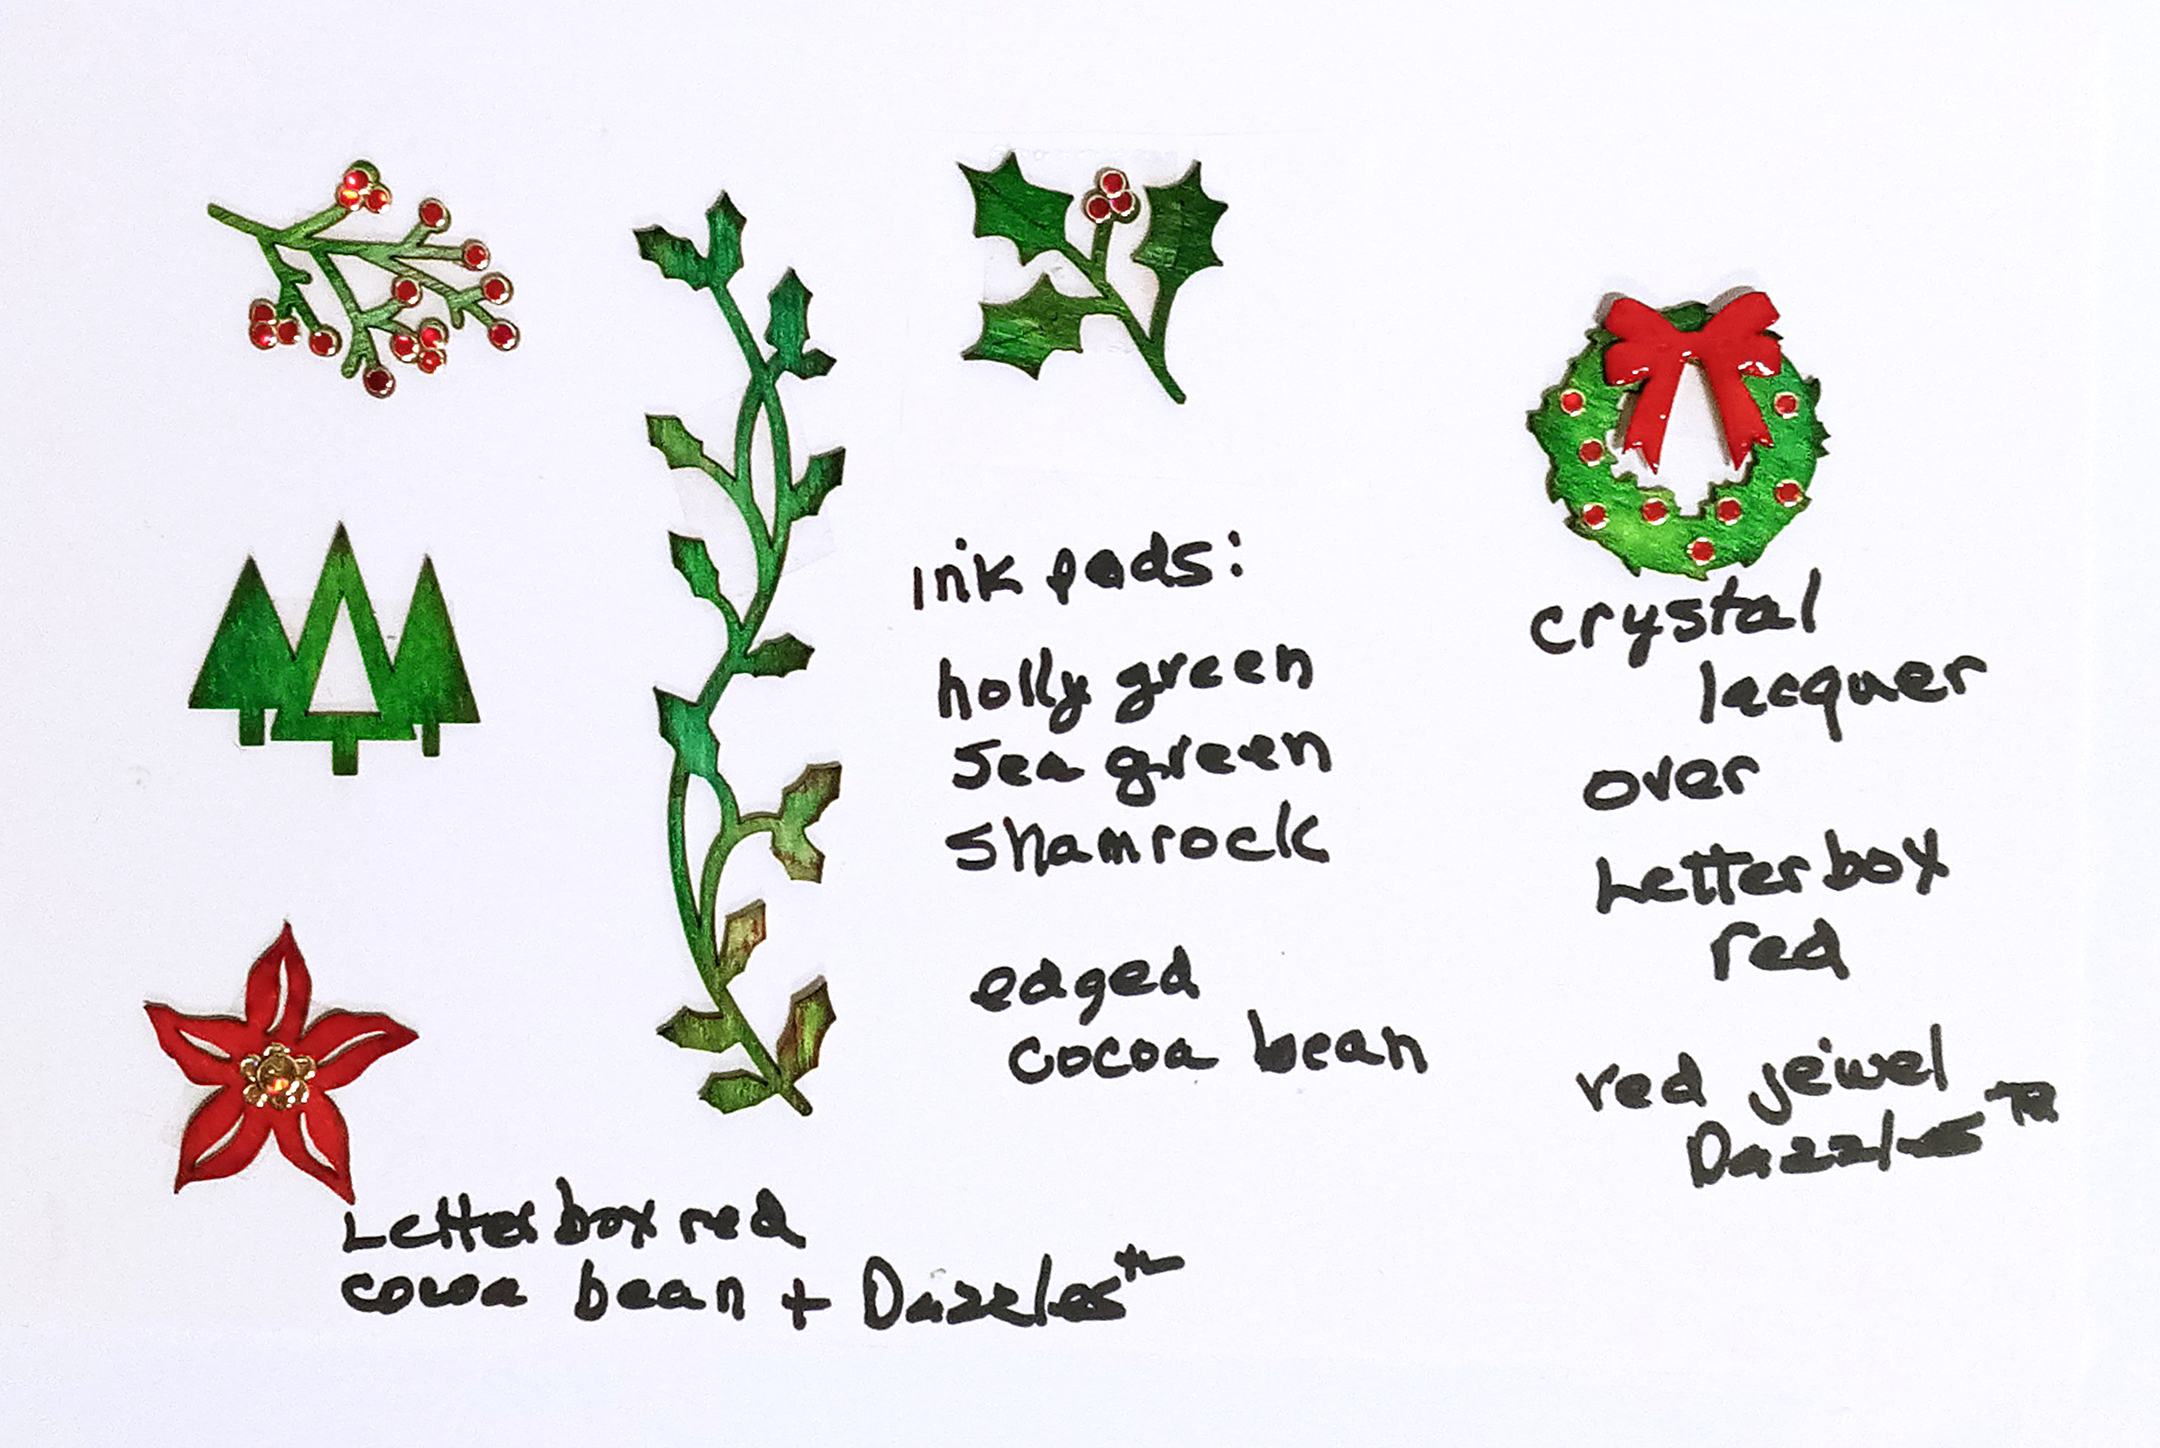 ink pads:
holly green
sea green
shamrock
edged
cocoa bean
crystal
lacquer
over
Letterbox
red
red jewel
Dazzles™
Letterbox red
cocoa bean + Dazzles™